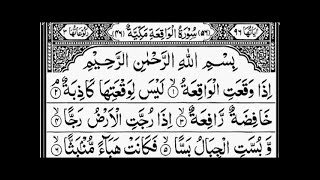 اٰيَاتُهَا ٩٦ (٥٦) سُوْرَةُ الْوَاقِعَةِ مَكِّيَّةٌ (٤٦) رُكُوْعَاتُهَا ٣
بِسْمِ اللّٰهِ الرَّحْمٰنِ الرَّحِيْمِ
اِذَا وَقَعَتِ الْوَاقِعَةُ ۙ١ لَيْسَ لِوَقْعَتِهَا كَاذِبَةٌ ۘ٢
خَافِضَةٌ رَّافِعَةٌ ۙ٣ اِذَا رُجَّتِ الْاَرْضُ رَجًّا ۙ٤
وَّ بُسَّتِ الْجِبَالُ بَسًّا ۙ٥ فَكَانَتْ هَبَآءً مُّنْۢبَثًّا ۙ٦